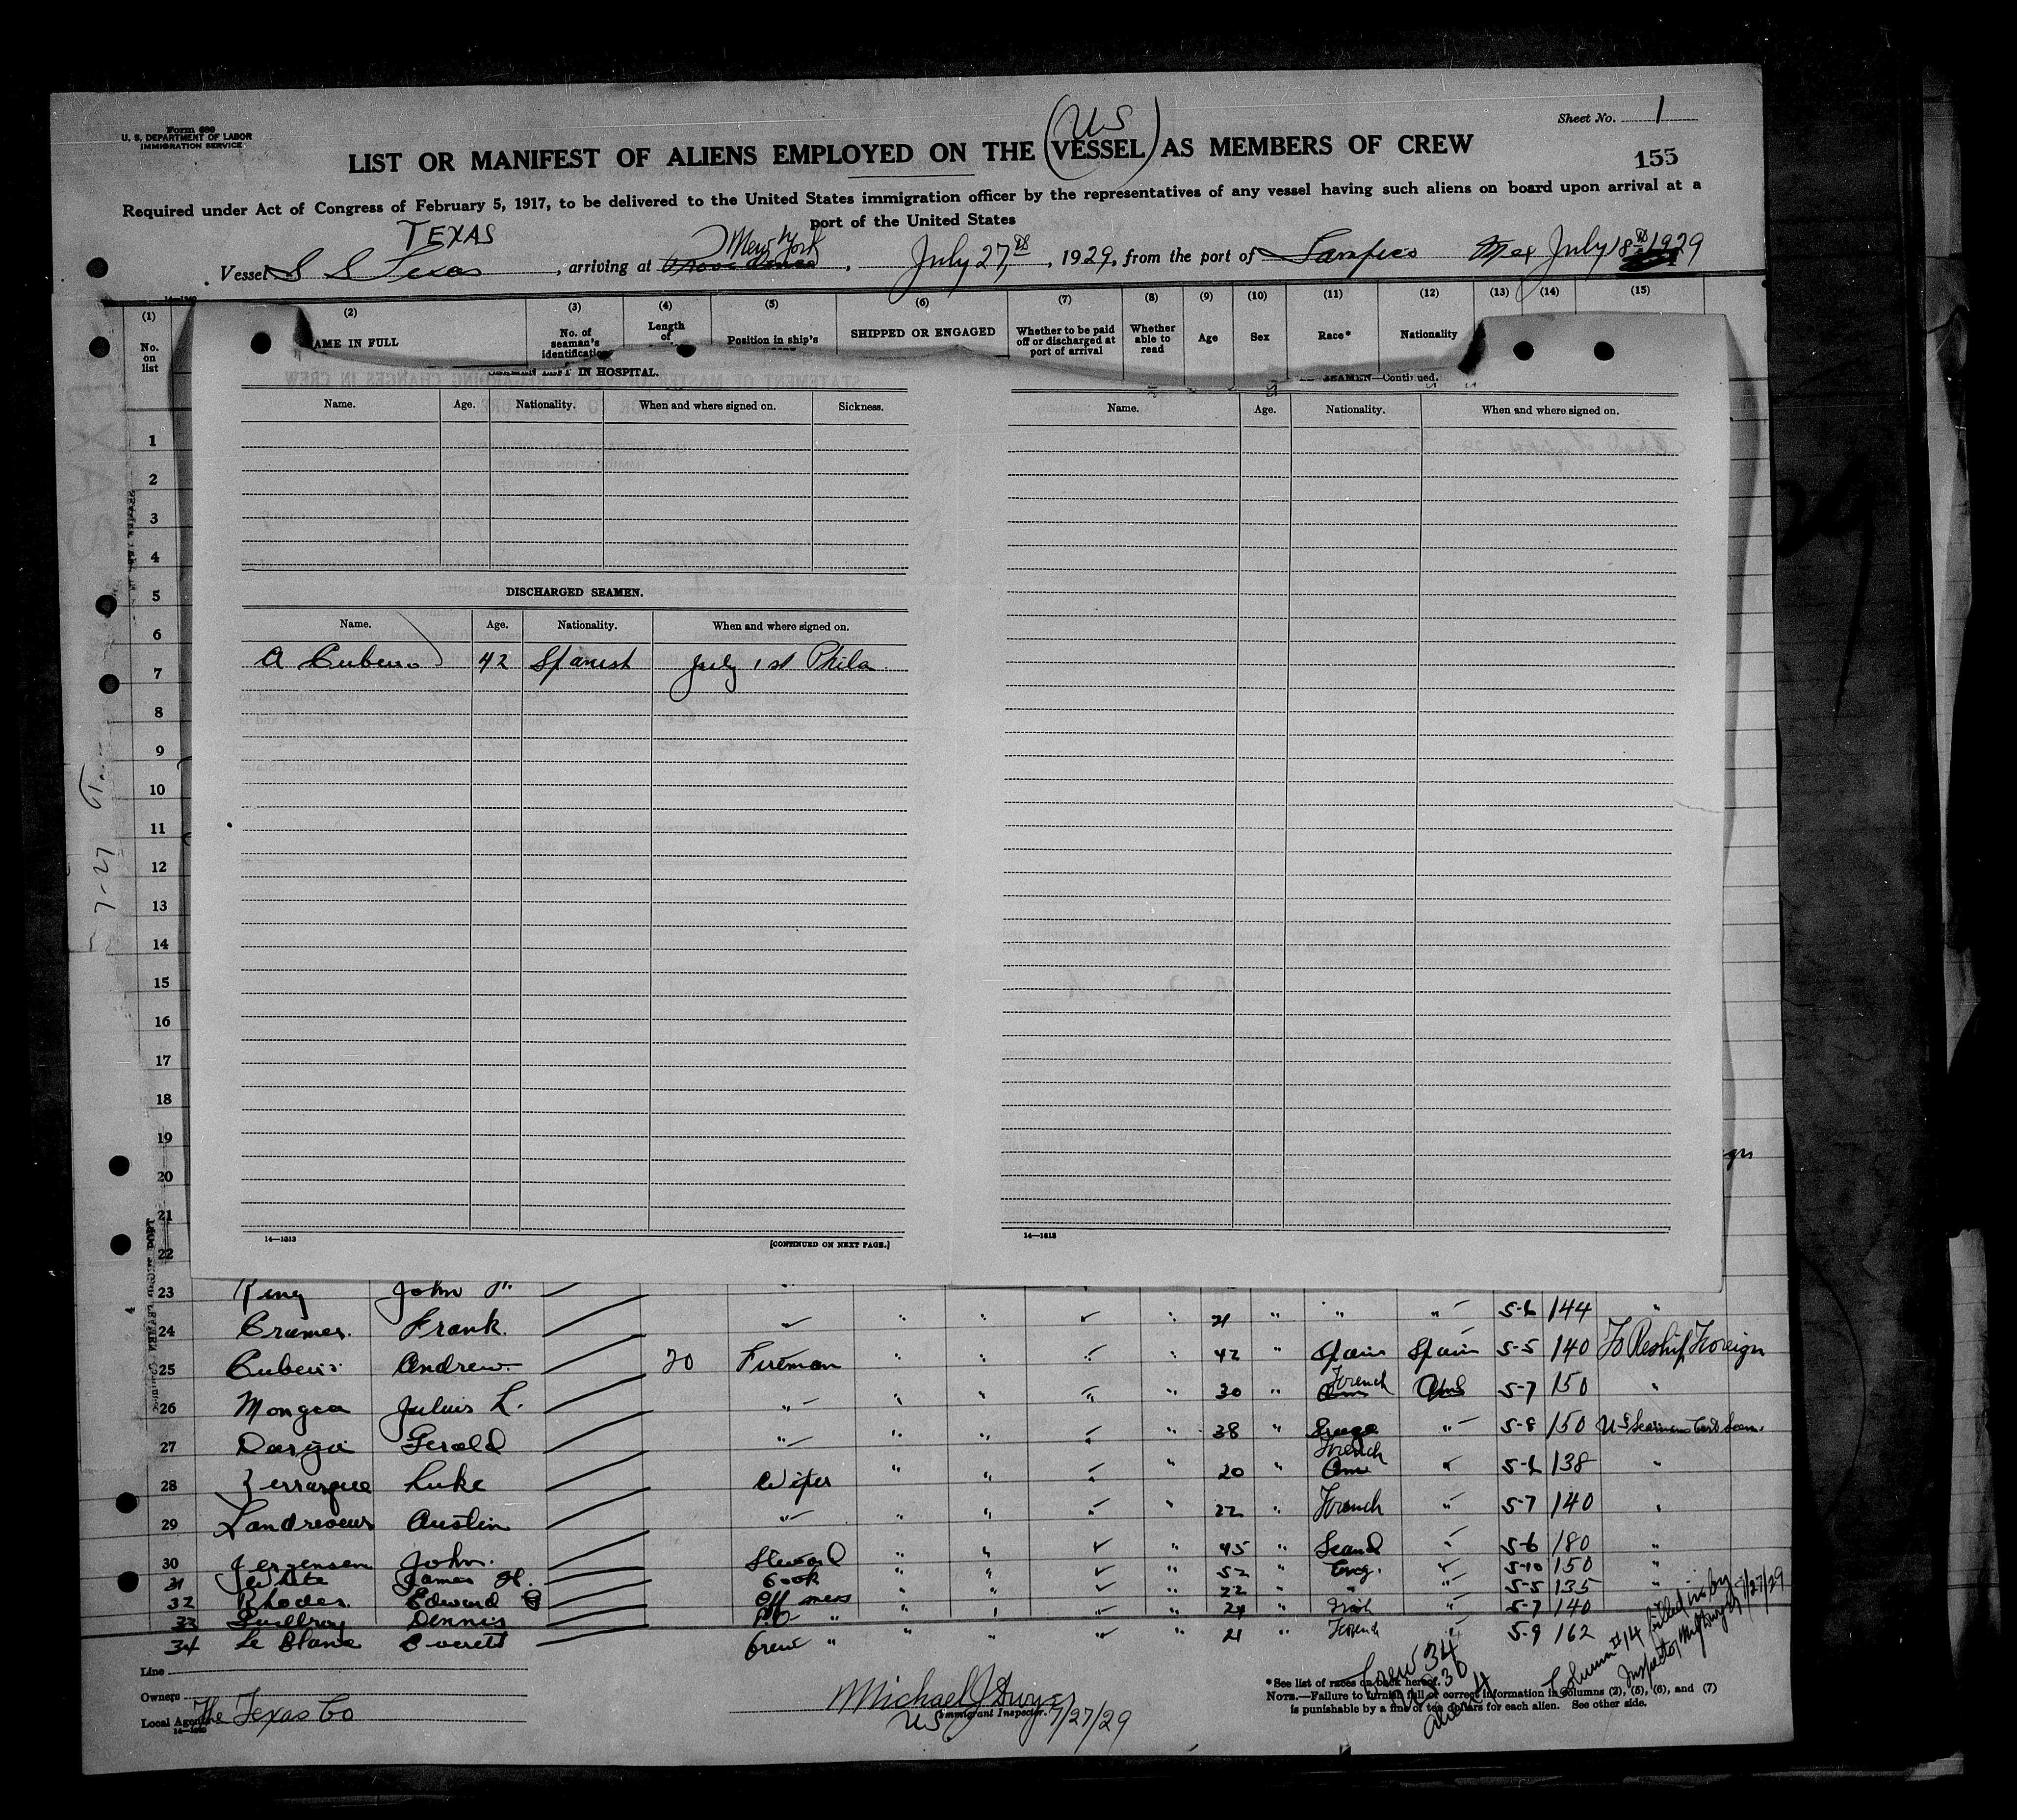 Form 680
U. S. DEPARTMENT OF LABOR
IMMIGRATION SERVICE
Sheet No. 1
(US)
LIST OR MANIFEST OF ALIENS EMPLOYED ON THE VESSEL AS MEMBERS OF CREW
155
Required under Act of Congress of February 5, 1917, to be delivered to the United States immigration officer by the representatives of any vessel having such aliens on board upon arrival at a
port of the United States
TEXAS
New York
Vessel S S Texas, arriving at Providence, July 27th, 1929, from the port of Tampico Mex July 18th 1929
(1) (2) (3) (4) (5) (6) (7) (8) (9) (10) (11) (12) (13) (14) (15)
No. on list
AME IN FULL
No. of seaman's identification
Length of
Position in ship's
SHIPPED OR ENGAGED
Whether to be paid off or discharged at port of arrival
Whether able to read
Age
Sex
Race*
Nationality
IN HOSPITAL.
SEAMEN—Continued.
Name. Age. Nationality. When and where signed on. Sickness.
Name. Age. Nationality. When and where signed on.
DISCHARGED SEAMEN.
Name. Age. Nationality. When and where signed on.
A Cubeiro 42 Spanish July 1st Phila
14—1613
[CONTINUED ON NEXT PAGE.]
14—1613
1
2
3
4
5
6
7
8
9
10
11
12
13
14
15
16
17
18
19
20
21
22
7-27
23 King John
24 Cramer. Frank. " " " ✓ " 21 " " " 5-6 144 "
25 Cubeiro Andrew 20 Fireman " " " " 42 " Spain Spain 5-5 140 To Reship Foreign
26 Julius L. " " " " " 30 " French US 5-7 150 "
27 Gerald " " " " " 38 " " 5-8 150 US Seamans Card
28 Luke Wiper " " ✓ " 20 " French " 5-6 138 "
29 Austin " " " ✓ " 22 " French " 5-7 140 "
30 Jergensen John. Steward " " ✓ " 45 " Scand " 5-6 180 "
31 White James H. Cook " " ✓ " 52 " Eng. " 5-10 150 "
32 Rhodes Edward Off mess " " ✓ " 22 " " " 5-5 135 "
33 Guillroy Dennis P.O " " " ✓ " 24 " Irish " 5-7 140
34 Le Blanc Everett Crew " " " ✓ " 21 " French " 5-9 162
Line
Owners
Local Agents The Texas Co
Michael J Dwyer
US Immigrant Inspector. 7/27/29
Crew 34
US 30
Aliens 4
Column #14 filled in by
Inspector 7/27/29
*See list of races on back hereof.
NOTE.—Failure to furnish full or correct information in columns (2), (5), (6), and (7)
is punishable by a fine of ten dollars for each alien. See other side.